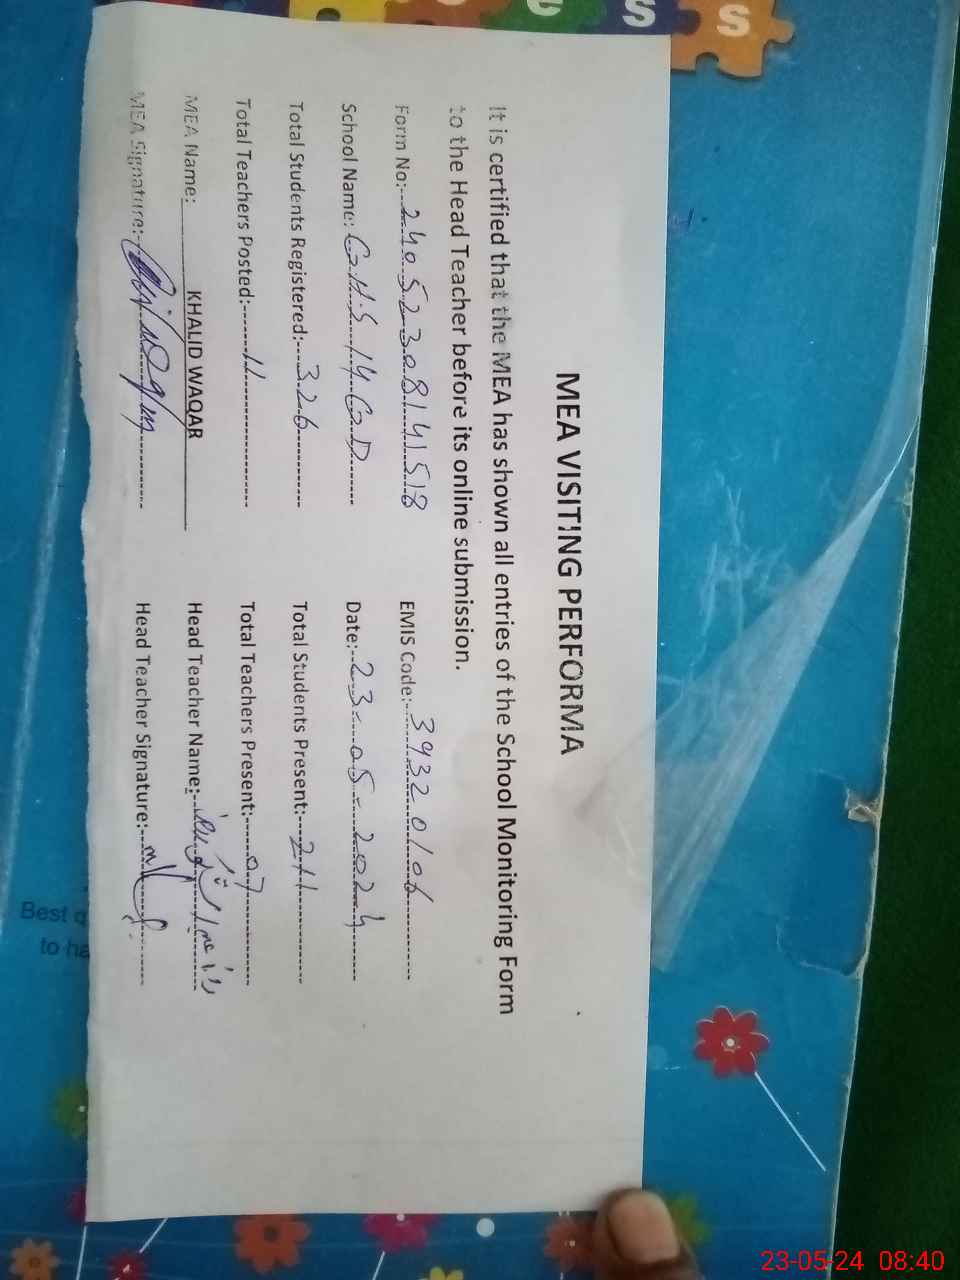 MEA VISITING PERFORMA
It is certified that the MEA has shown all entries of the School Monitoring Form
to the Head Teacher before its online submission.
Form No:- 24052308141518 EMIS Code:- 39320106
School Name: G.H.S 14 GD Date:- 23-05-2024
Total Students Registered:- 326 Total Students Present:- 211
Total Teachers Posted:- 11 Total Teachers Present:- 07
MEA Name: KHALID WAQAR Head Teacher Name:-
MEA Signature:- Head Teacher Signature:-
Best q
to ha
S
S
23-05-24 08:40